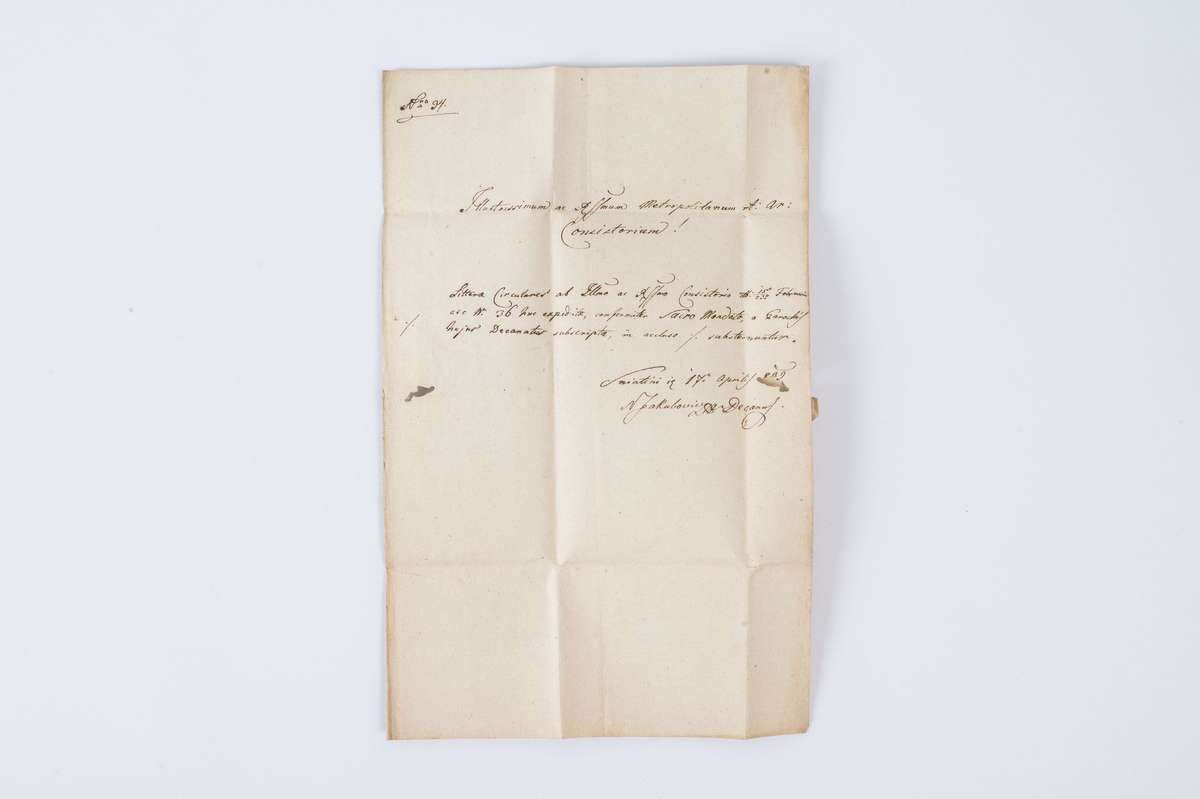 Nro 94.
Illustrissimum ac Rssmum Metropolitanum rit: Ar:
Consistorium!
Littera Circulares ab Illmo ac Rssmo Consistorio Februarii
N. 36 huc expeditæ, conformiter Sacro Mandato, a Parochis
./. hujus Decanatus subscriptæ, in acluso ./. substernuntur.
Sniatini 17. Aprilis 809
N Jakubowicz Decanus.